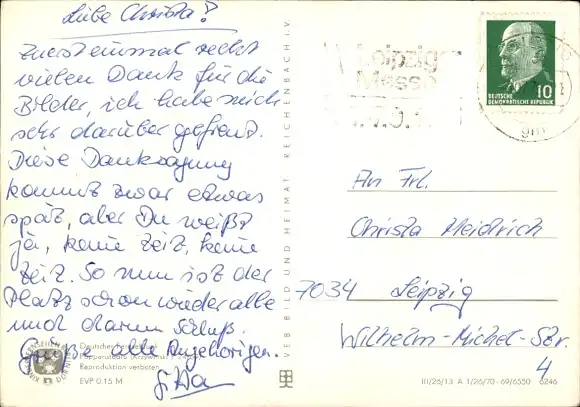 Liebe Christa!
Zuerst einmal recht
vielen Dank für die
Bilder, ich habe mich
sehr darüber gefreut.
Diese Danksagung
kommt zwar etwas
spät, aber Du weißt
ja, keine Zeit, keine
Zeit. So nun ist der
Platz schon wieder alle
und darum Schluß.
Grüße alle Angehörigen.
Reproduktion verboten
EVP 0.15 M
VEB BILD UND HEIMAT REICHENBACH I. V.
Leipziger
Messe
10
DEUTSCHE
DEMOKRATISCHE REPUBLIK
An Frl.
Christa Meidrich
7034 Leipzig
Wilhelm-Michel-Str.
4
III/26/13 A 1/26/70 - 69/6550 6246